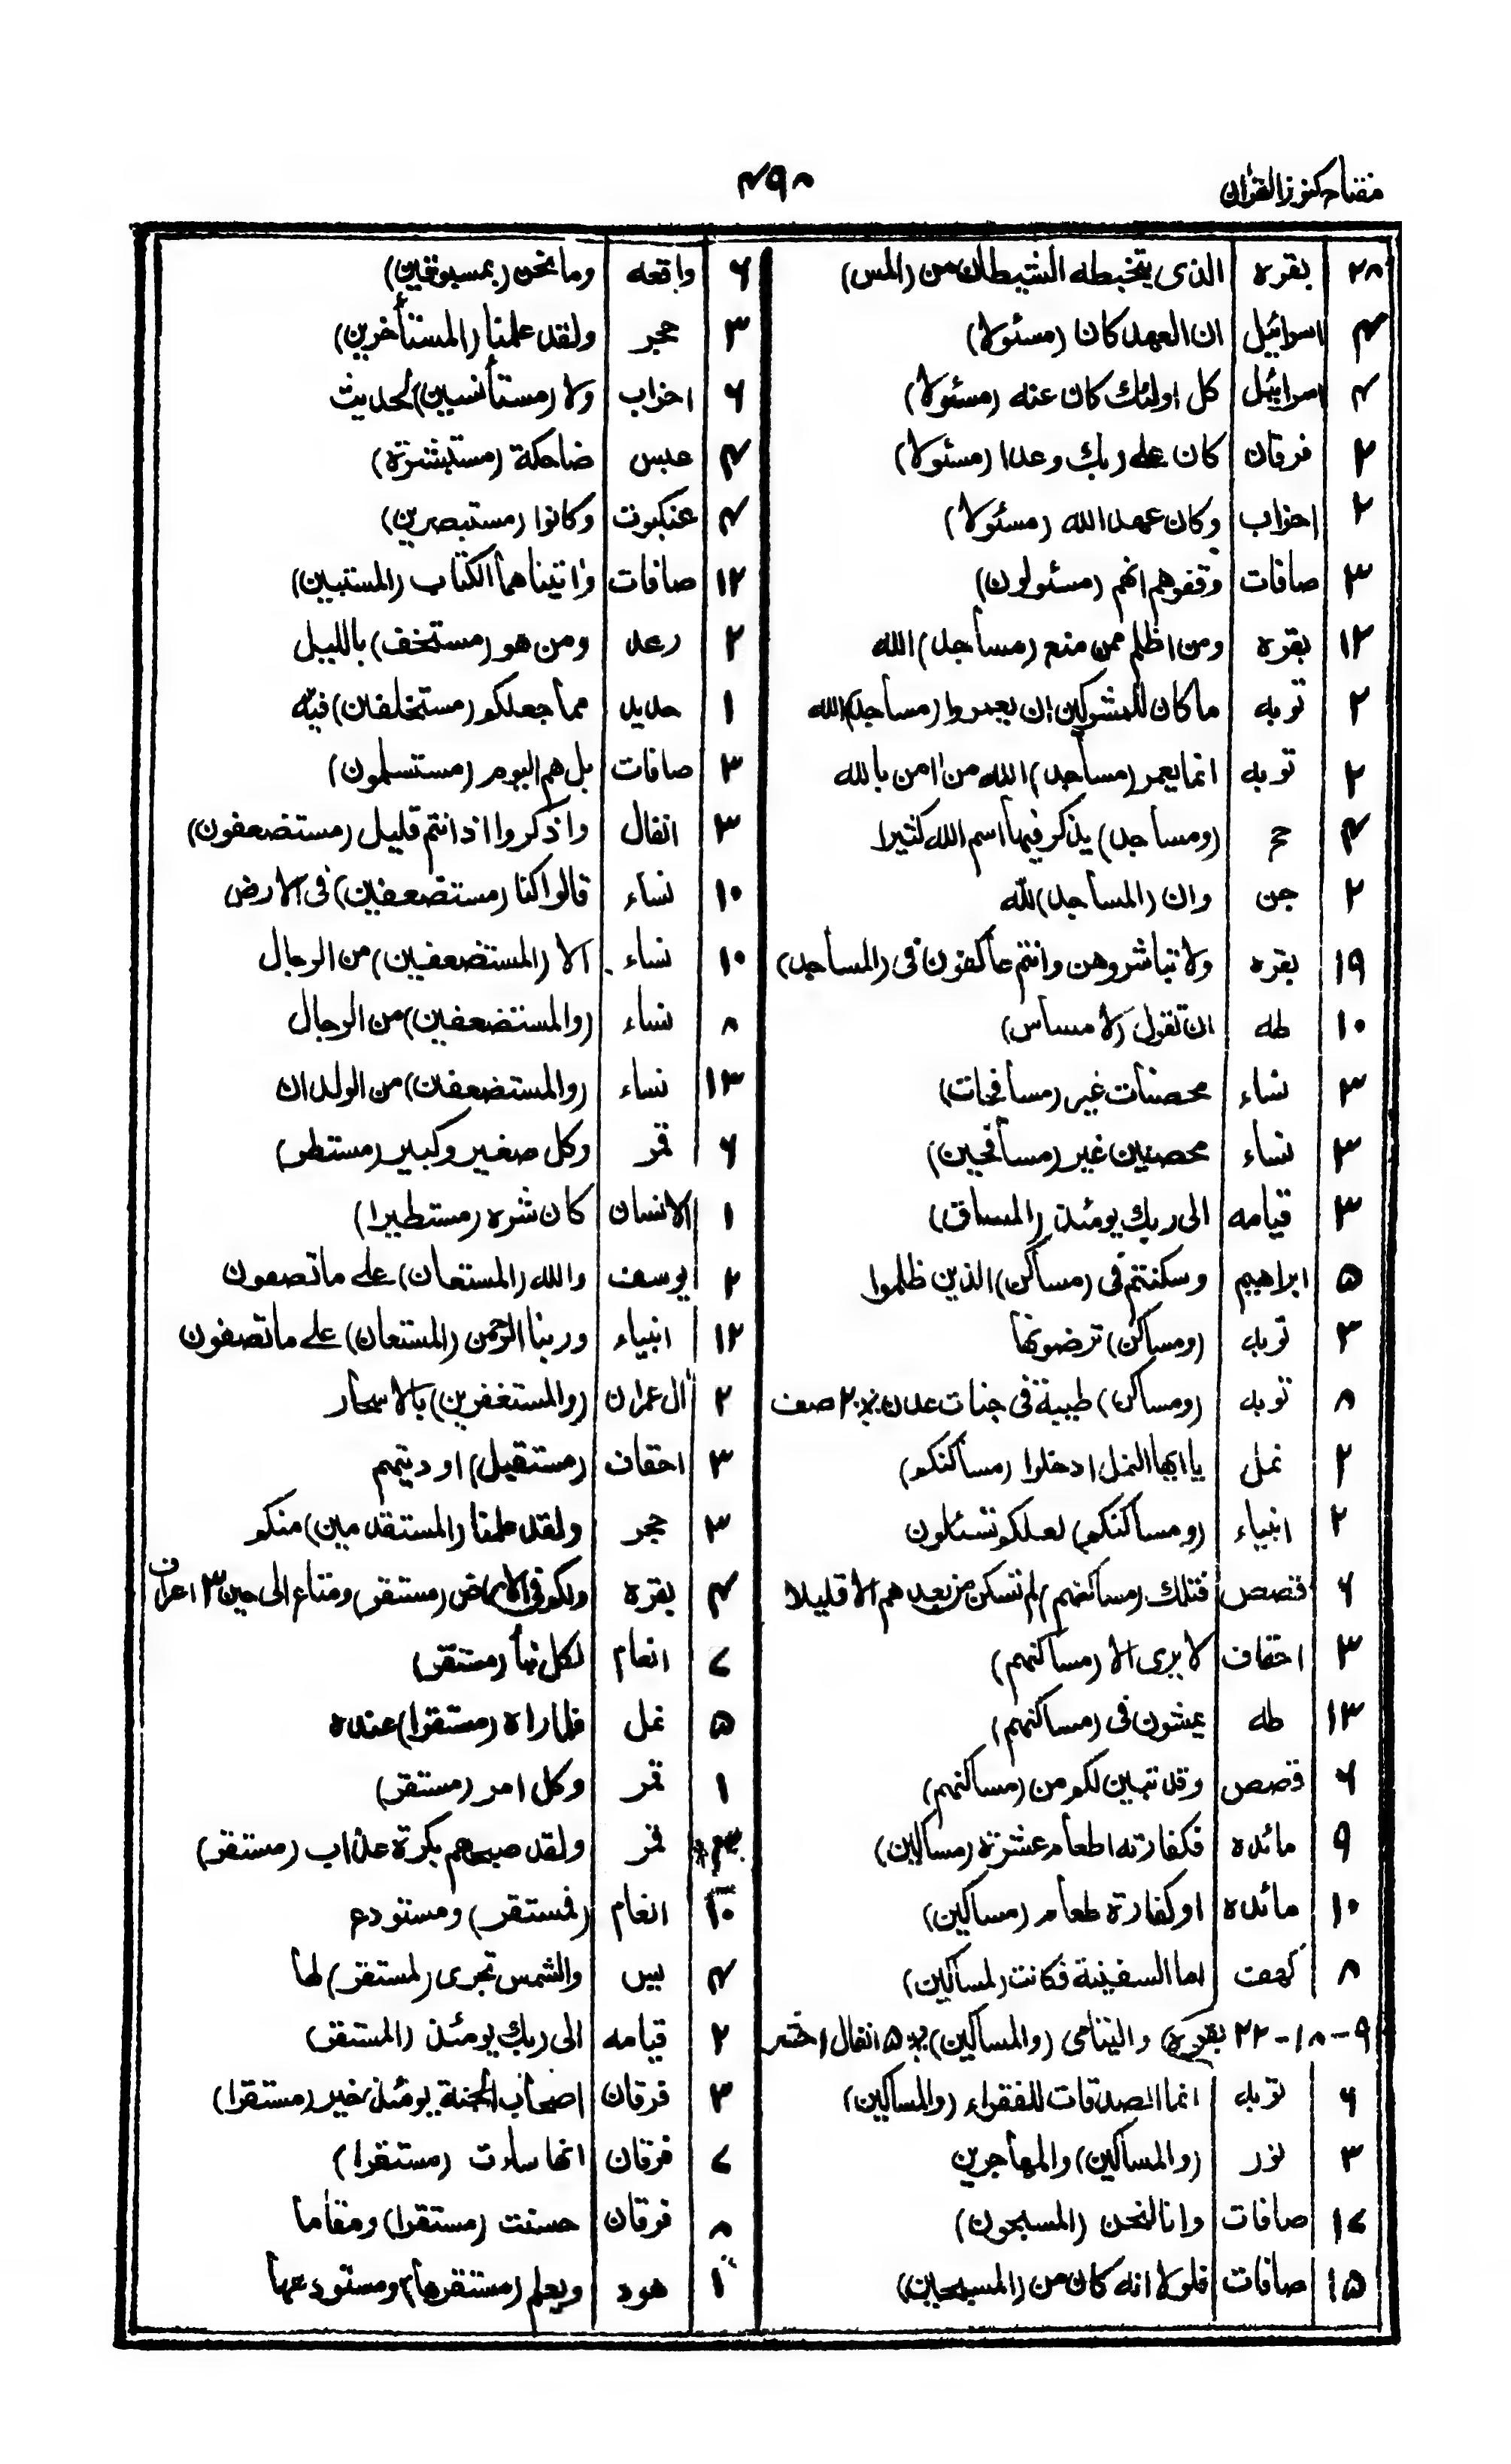 مفتاح کنوز القرآن
۴۹۸
۲۸ بقره الذی یتخبطه الشیطان من (المس)
۴ اسرائیل ان العهد کان (مسئولا)
۴ اسرائیل کل اولئک کان عنه (مسئولا)
۲ فرقان کان علی ربک وعدا (مسئولا)
۲ احزاب وکان عهد الله (مسئولا)
۳ صافات وقفوهم انهم (مسئولون)
۱۲ بقره ومن اظلم ممن منع (مساجد) الله
۲ توبه ما کان للمشرکین ان یعمروا (مساجد) الله
۲ توبه انما یعمر (مساجد) الله من امن بالله
۴ حج (ومساجد) یذکر فیها اسم الله کثیرا
۲ جن وان (المساجد) لله
۱۹ بقره ولا تباشروهن وانتم عاکفون فی (المساجد)
۱۰ طه ان تقول (لا مساس)
۳ نساء محصنات غیر (مسافحات)
۳ نساء محصنین غیر (مسافحین)
۳ قیامه الی ربک یومئذ (المساق)
۵ ابراهیم وسکنتم فی (مساکن) الذین ظلموا
۳ توبه (ومساکن) ترضونها
۸ توبه (ومساکن) طیبة فی جنات عدن ۲ صف
۲ نمل یا ایها النمل ادخلوا (مساکنکم)
۲ انبیاء (ومساکنکم) لعلکم تسئلون
۶ قصص فتلک (مساکنهم) لم تسکن من بعدهم الا قلیلا
۳ احقاف لا یری الا (مساکنهم)
۱۳ طه یمشون فی (مساکنهم)
۴ قصص وقد تبین لکم من (مساکنهم)
۹ مائده فکفارته اطعام عشرة (مساکین)
۱۰ مائده او کفارة طعام (مساکین)
۸ کهف اما السفینة فکانت (لمساکین)
۹-۱۸-۲۲ بقره والیتامی (والمساکین) ۵ انفال احشر
۶ توبه انما الصدقات للفقراء (والمساکین)
۳ نور (والمساکین) والمهاجرین
۱۷ صافات وانا لنحن (المسبحون)
۱۵ صافات فلولا انه کان من (المسبحین)
۶ واقعه وما نحن (بمسبوقین)
۳ حجر ولقد علمنا (المستأخرین)
۶ احزاب ولا (مستأنسین) لحدیث
۴ عبس ضاحکة (مستبشرة)
۴ عنکبوت وکانوا (مستبصرین)
۱۲ صافات واتیناهما الکتاب (المستبین)
۲ رعد ومن هو (مستخف) باللیل
۱ حدید مما جعلکم (مستخلفین) فیه
۳ صافات بل هم الیوم (مستسلمون)
۳ انفال واذکروا اذ انتم قلیل (مستضعفون)
۱۰ نساء قالوا کنا (مستضعفین) فی الارض
۱۰ نساء الا (المستضعفین) من الرجال
۸ نساء (والمستضعفین) من الرجال
۱۳ نساء (والمستضعفین) من الولدان
۶ قمر وکل صغیر وکبیر (مستطر)
۱ الانسان کان شره (مستطیرا)
۲ یوسف والله (المستعان) علی ما تصفون
۱۲ انبیاء وربنا الرحمن (المستعان) علی ما تصفون
۲ ال عمران (والمستغفرین) بالاسحار
۳ احقاف (مستقبل) اودیتهم
۳ حجر ولقد علمنا (المستقدمین) منکم
۴ بقره ولکم فی الارض (مستقر) ومتاع الی حین ۳ اعراف
۷ انعام لکل نبأ (مستقر)
۵ نمل فلما راه (مستقرا) عنده
۱ قمر وکل امر (مستقر)
قمر ولقد صبحهم بکرة عذاب (مستقر)
۱۰ انعام (فمستقر) ومستودع
۴ یس والشمس تجری (لمستقر) لها
۲ قیامه الی ربک یومئذ (المستقر)
۳ فرقان اصحاب الجنة یومئذ خیر (مستقرا)
۷ فرقان انها ساءت (مستقرا)
۸ فرقان حسنت (مستقرا) ومقاما
۱ هود ویعلم (مستقرها) ومستودعها